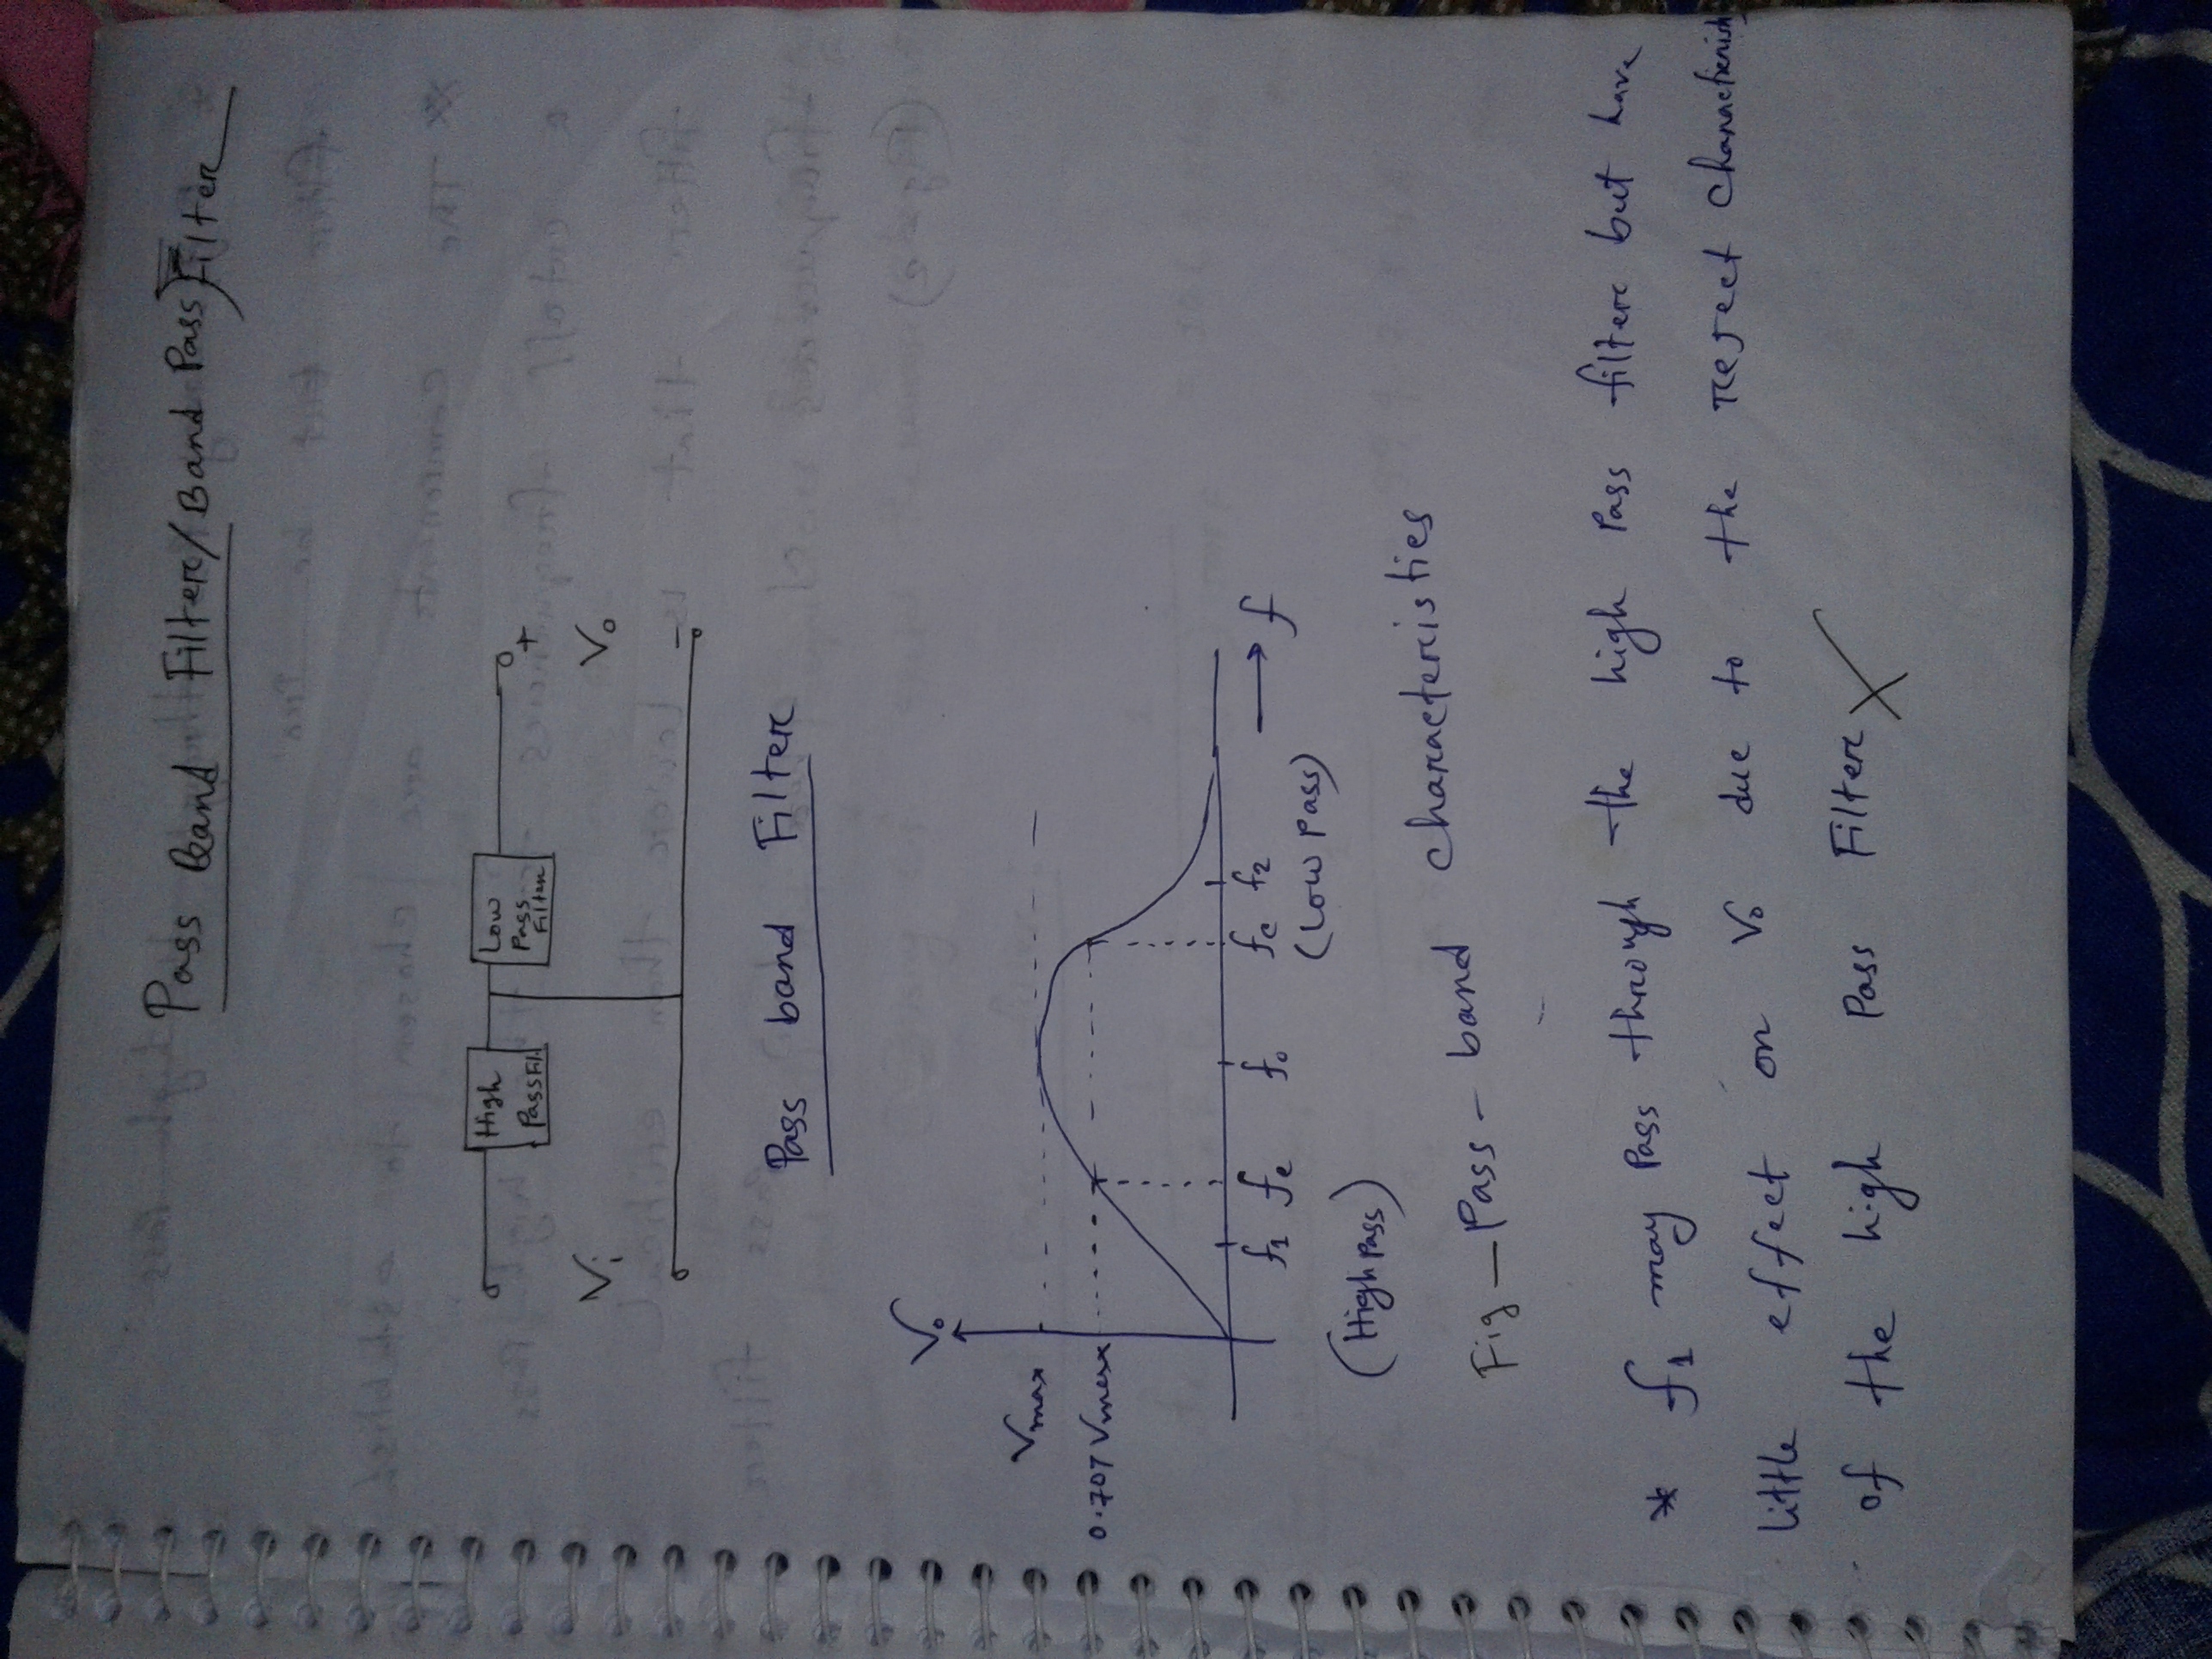 Pass Band Filter/Band Pass Filter
High
Pass Fil.
Low
Pass
Filter
+
Vi
Vo
-
Pass band Filter
Vo
Vmax
0.707 Vmax
f1 fc f0 fc f2
f
(High Pass)
(Low Pass)
Fig — Pass - band characteristies
* f1 may Pass through the high Pass filter but have
little effect on Vo due to the reject charactering
of the high Pass Filter